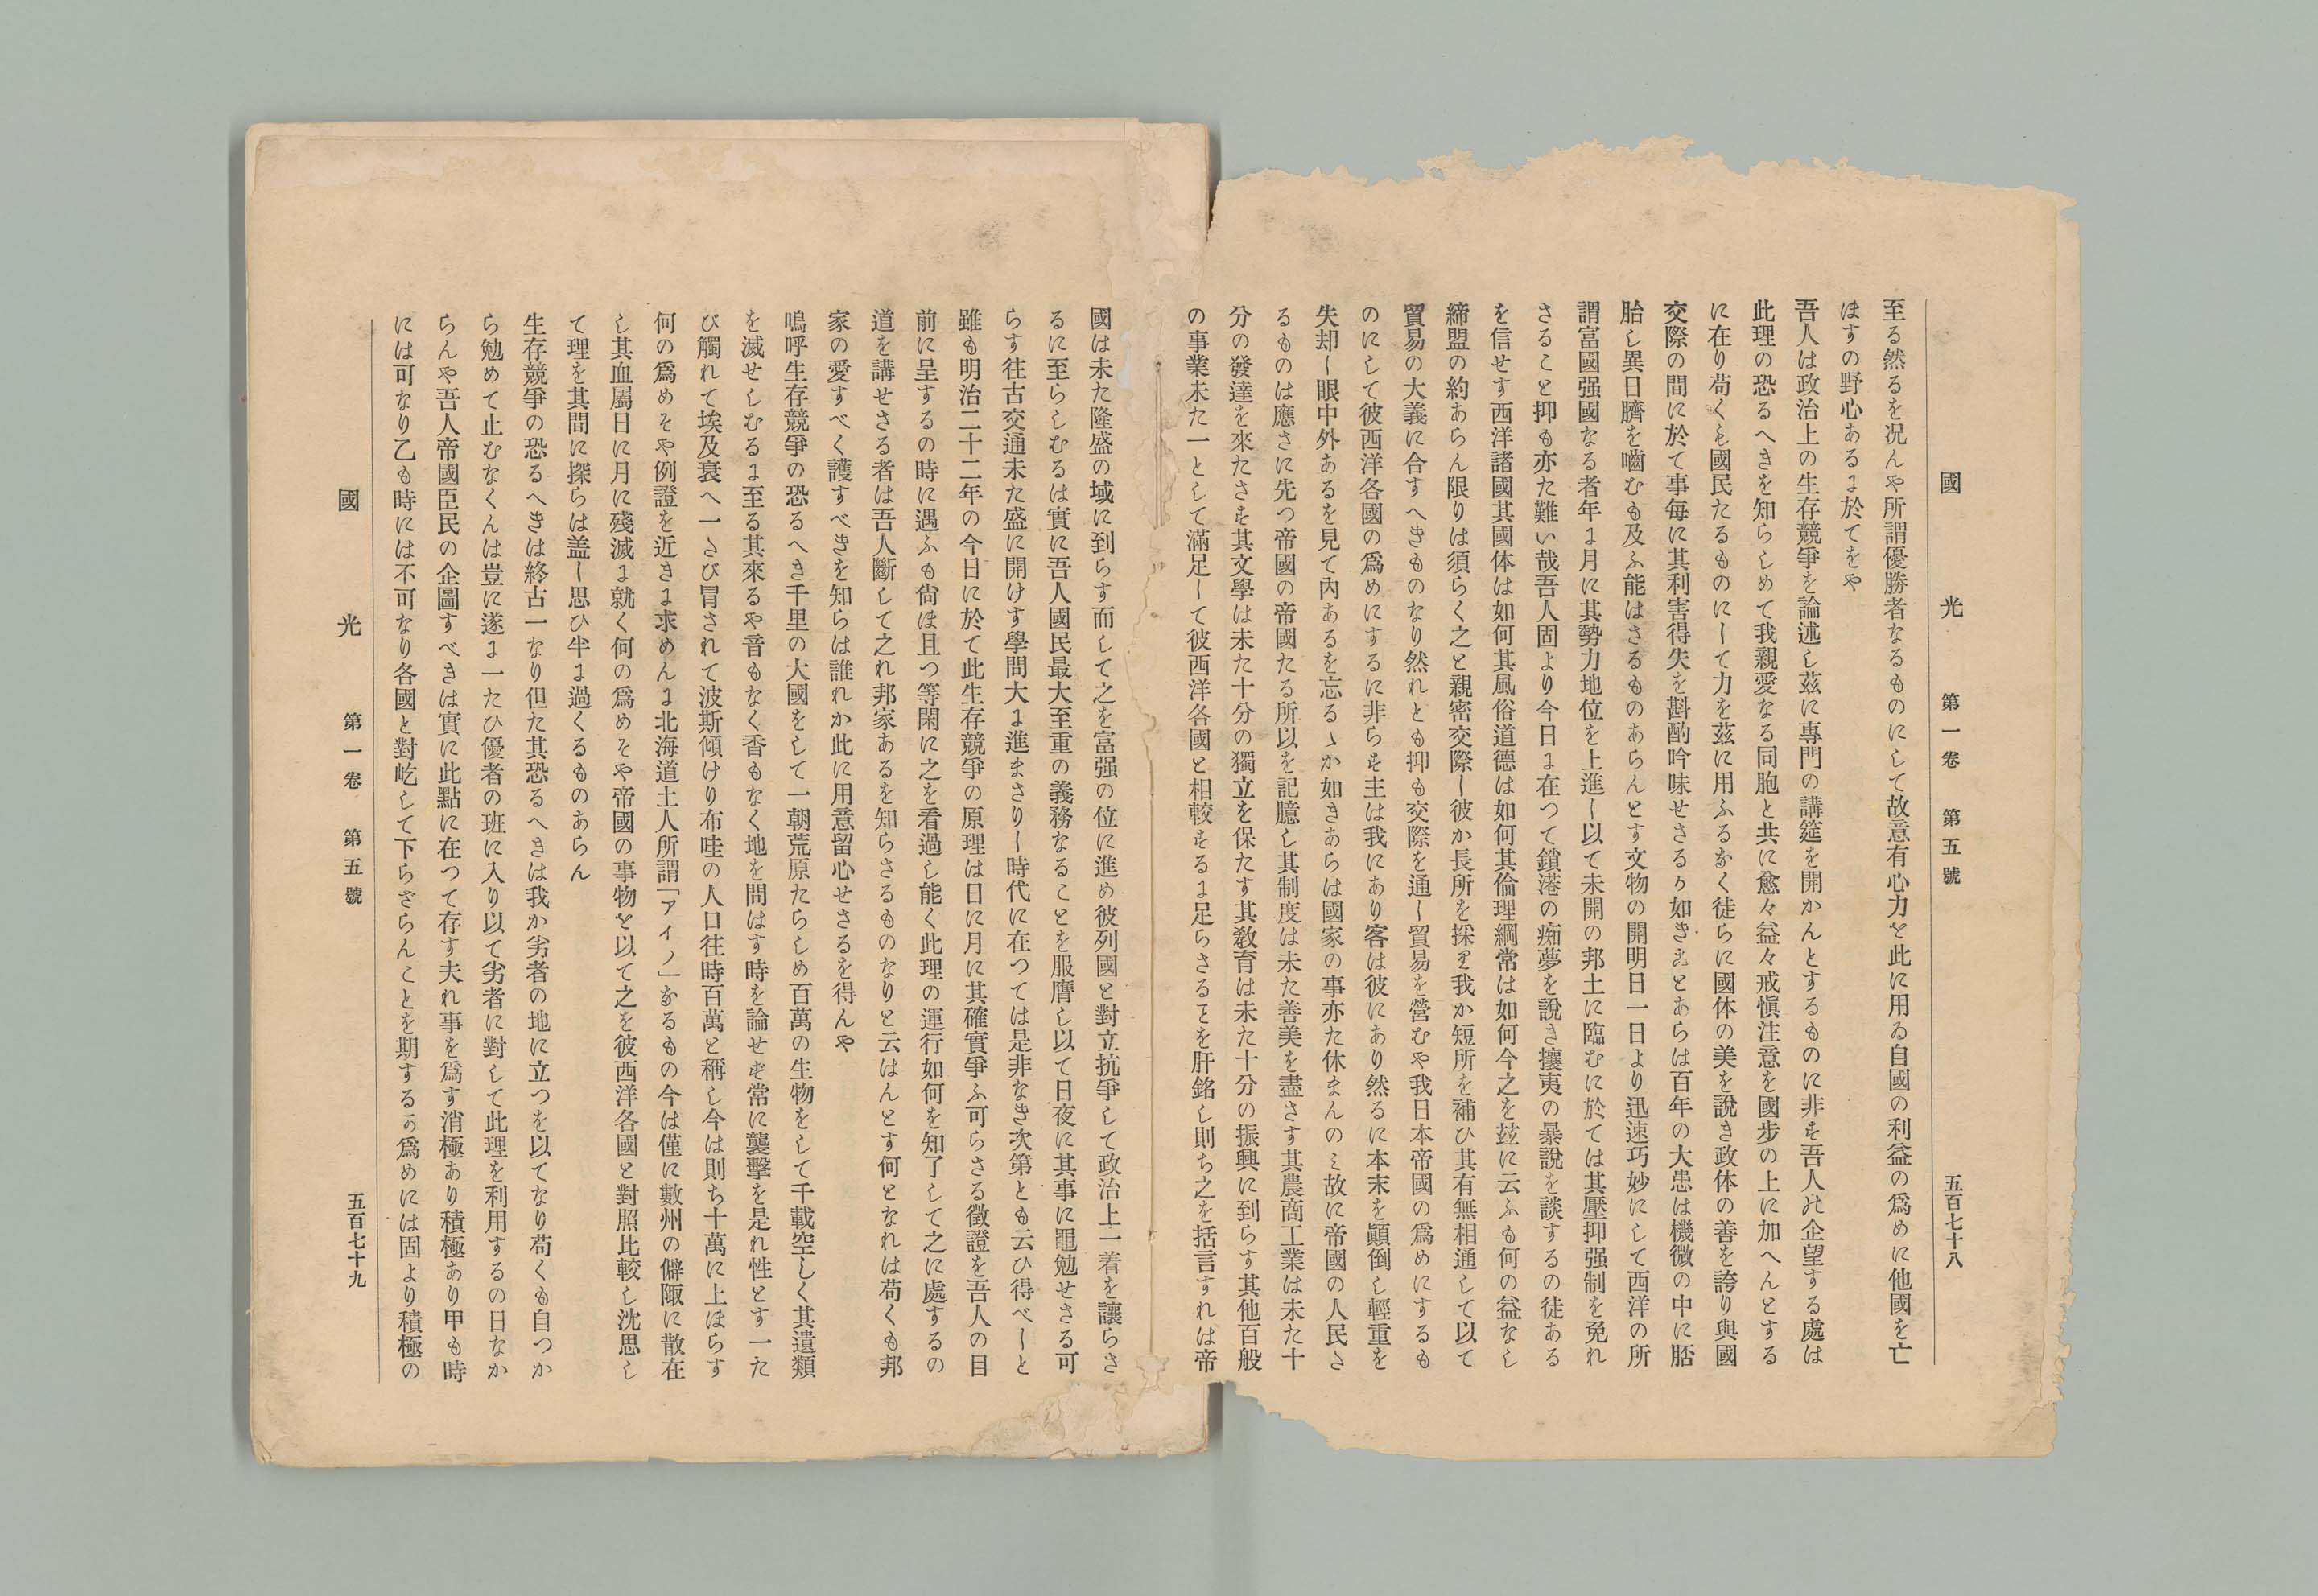 國光 第一卷 第五號 五百七十八
至る然るを况んや所謂優勝者なるものにして故意有心力を此に用ゐ自國の利益の爲めに他國を亡
ほすの野心あるに於てをや
吾人は政治上の生存競爭を論述し茲に專門の講筵を開かんとするものに非ず吾人の企望する處は
此理の恐るへきを知らしめて我親愛なる同胞と共に愈々益々戒愼注意を國步の上に加へんとする
に在り苟くも國民たるものにして力を茲に用ふるなく徒らに國体の美を說き政体の善を誇り與國
交際の間に於て事每に其利害得失を斟酌吟味せさるか如きことあらは百年の大患は機微の中に胚
胎し異日臍を嚙むも及ふ能はさるものあらんとす文物の開明日一日より迅速巧妙にして西洋の所
謂富國强國なる者年に月に其勢力地位を上進し以て未開の邦土に臨むに於ては其壓抑强制を免れ
さること抑も亦た難い哉吾人固より今日に在つて鎖港の痴夢を說き攘夷の暴說を談するの徒ある
を信せす西洋諸國其國体は如何其風俗道德は如何其倫理綱常は如何今之を玆に云ふも何の益なし
締盟の約あらん限りは須らく之と親密交際し彼か長所を採り我か短所を補ひ其有無相通して以て
貿易の大義に合すへきものなり然れとも抑も交際を通し貿易を營むや我日本帝國の爲めにするも
のにして彼西洋各國の爲めにするに非らず主は我にあり客は彼にあり然るに本末を顚倒し輕重を
失却し眼中外あるを見て內あるを忘るゝか如きあらは國家の事亦た休まんのミ故に帝國の人民さ
るものは應さに先つ帝國の帝國たる所以を記臆し其制度は未た善美を盡さす其農商工業は未た十
分の發達を來たさず其文學は未た十分の獨立を保たす其敎育は未た十分の振興に到らす其他百般
の事業未た一として滿足して彼西洋各國と相較するに足らさるヿを肝銘し則ち之を括言すれは帝
國は未た隆盛の域に到らす而して之を富强の位に進め彼列國と對立抗爭して政治上一着を讓らさ
るに至らしむるは實に吾人國民最大至重の義務なることを服膺し以て日夜に其事に黽勉せさる可
らす往古交通未た盛に開けす學問大に進まさりし時代に在つては是非なき次第とも云ひ得べしと
雖も明治二十二年の今日に於て此生存競爭の原理は日に月に其確實爭ふ可らさる徵證を吾人の目
前に呈するの時に遇ふも尙ほ且つ等閑に之を看過し能く此理の運行如何を知了して之に處するの
道を講せさる者は吾人斷して之れ邦家あるを知らさるものなりと云はんとす何となれは苟くも邦
家の愛すべく護すべきを知らは誰れか此に用意留心せさるを得んや
嗚呼生存競爭の恐るへき千里の大國をして一朝荒原たらしめ百萬の生物をして千載空しく其遺類
を滅せしむるに至る其來るや音もなく香もなく地を問はす時を論せず常に襲擊を是れ性とす一た
び觸れて埃及衰へ一たび冒されて波斯傾けり布哇の人口往時百萬と稱し今は則ち十萬に上ほらす
何の爲めそや例證を近きに求めんに北海道土人所謂「アイノ」なるもの今は僅に數州の僻陬に散在
し其血屬日に月に殘滅に就く何の爲めそや帝國の事物を以て之を彼西洋各國と對照比較し沈思し
て理を其間に探らは盖し思ひ半に過くるものあらん
生存競爭の恐るへきは終古一なり但た其恐るへきは我か劣者の地に立つを以てなり苟くも自つか
ら勉めて止むなくんは豈に遂に一たひ優者の班に入り以て劣者に對して此理を利用するの日なか
らんや吾人帝國臣民の企圖すべきは實に此點に在つて存す夫れ事を爲す消極あり積極あり甲も時
には可なり乙も時には不可なり各國と對屹して下らざらんことを期するの爲めには固より積極の
國光 第一卷 第五號 五百七十九